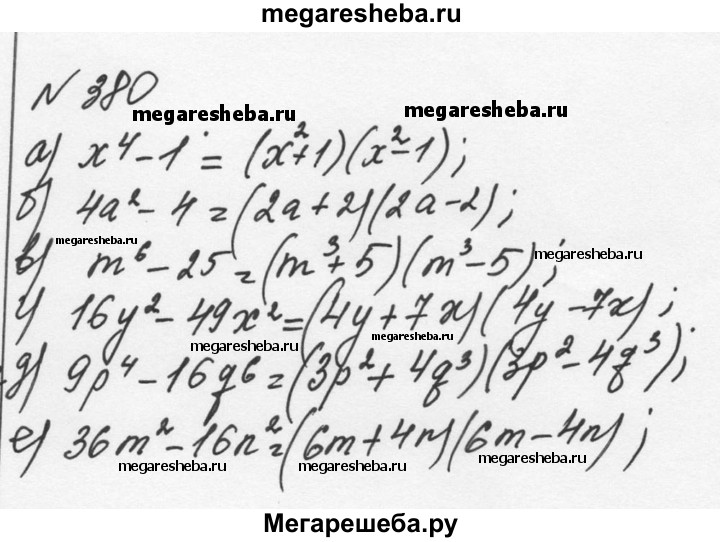 megaresheba.ru
№ 380
megaresheba.ru megaresheba.ru
а) x⁴ - 1 = (x² + 1)(x² - 1);
б) 4a² - 4 = (2a + 2)(2a - 2);
megaresheba.ru megaresheba.ru
в) m⁶ - 25 = (m³ + 5)(m³ - 5);
г) 16y² - 49x² = (4y + 7x)(4y - 7x);
megaresheba.ru megaresheba.ru
д) 9p⁴ - 16q⁶ = (3p² + 4q³)(3p² - 4q³);
е) 36m² - 16n² = (6m + 4n)(6m - 4n);
megaresheba.ru megaresheba.ru megaresheba.ru
Мегарешеба.ру